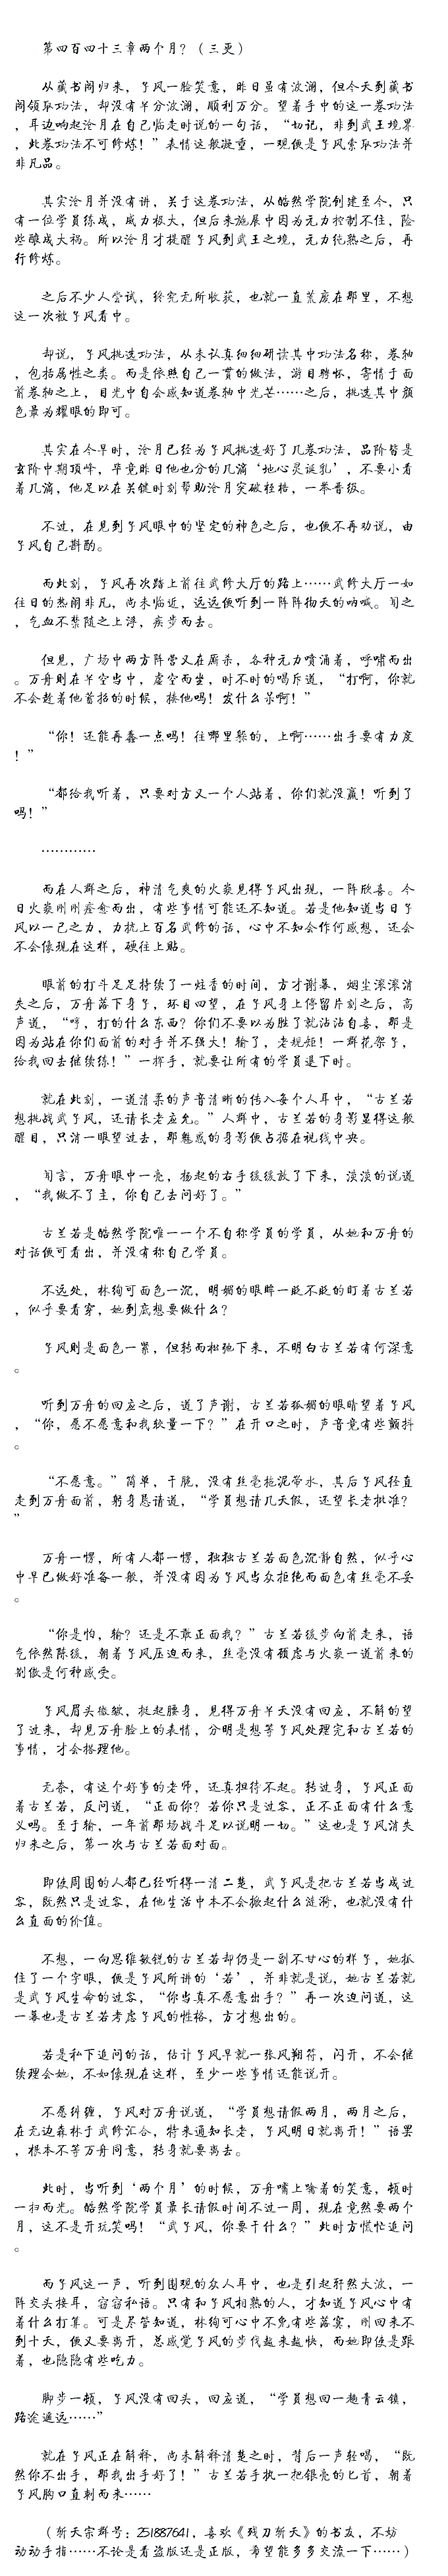 第四百四十三章两个月？（三更）
从藏书阁归来，子风一脸笑意，昨日虽有波澜，但今天到藏书
阁领取功法，却没有半分波澜，顺利万分。望着手中的这一卷功法
，耳边响起沧月在自己临走时说的一句话，“切记，非到武王境界
，此卷功法不可修炼！”表情这般凝重，一观便是子风索取功法并
非凡品。
其实沧月并没有讲，关于这卷功法，从皓然学院创建至今，只
有一位学员练成，威力极大，但后来施展中因为元力控制不住，险
些酿成大祸。所以沧月才提醒子风到武王之境，元力纯熟之后，再
行修炼。
之后不少人尝试，终究无所收获，也就一直荒废在那里，不想
这一次被子风看中。
却说，子风挑选功法，从未认真细细研读其中功法名称，卷轴
，包括属性之类。而是依照自己一贯的做法，游目骋怀，寄情于面
前卷轴之上，目光中自会感知道卷轴中光芒……之后，挑选其中颜
色最为耀眼的即可。
其实在今早时，沧月已经为子风挑选好了几卷功法，品阶皆是
玄阶中期顶峰，毕竟昨日他也分的几滴‘地心灵诞乳’，不要小看
着几滴，他足以在关键时刻帮助沧月突破桎梏，一举晋级。
不过，在见到子风眼中的坚定的神色之后，也便不再劝说，由
子风自己斟酌。
而此刻，子风再次踏上前往武修大厅的路上……武修大厅一如
往日的热闹非凡，尚未临近，远远便听到一阵阵拗天的呐喊。闻之
，气血不禁随之上浮，疾步而去。
但见，广场中两方阵营又在厮杀，各种元力喷涌着，呼啸而出
。万舟则在半空当中，虚空而坐，时不时的喝斥道，“打啊，你就
不会趁着他首招的时候，揍他吗！发什么呆啊！”
“你！还能再蠢一点吗！往哪里躲的，上啊……出手要有力度
！”
“都给我听着，只要对方又一个人站着，你们就没赢！听到了
吗！”
…………
而在人群之后，神清气爽的火炎见得子风出现，一阵欣喜。今
日火炎刚刚痊愈而出，有些事情可能还不知道。若是他知道当日子
风以一己之力，力抗上百名武修的话，心中不知会作何感想，还会
不会像现在这样，硬往上贴。
眼前的打斗足足持续了一炷香的时间，方才谢幕，烟尘滚滚消
失之后，万舟落下身子，环目四望，在子风身上停留片刻之后，高
声道，“哼，打的什么东西？你们不要以为胜了就沾沾自喜，那是
因为站在你们面前的对手并不强大！输了，老规矩！一群花架子，
给我回去继续练！”一挥手，就要让所有的学员退下时。
就在此刻，一道清柔的声音清晰的传入每个人耳中，“古兰若
想挑战武子风，还请长老应允。”人群中，古兰若的身影显得这般
醒目，只消一眼望过去，那魅惑的身影便占据在视线中央。
闻言，万舟眼中一亮，扬起的右手缓缓放了下来，淡淡的说道
，“我做不了主，你自己去问好了。”
古兰若是皓然学院唯一一个不自称学员的学员，从她和万舟的
对话便可看出，并没有称自己学员。
不远处，林狗可面色一沉，明媚的眼眸一眨不眨的盯着古兰若
，似乎要看穿，她到底想要做什么？
子风则是面色一紧，但转而松弛下来，不明白古兰若有何深意
。
听到万舟的回应之后，道了声谢，古兰若狐媚的眼睛望着子风
，“你，愿不愿意和我较量一下？”在开口之时，声音竟有些颤抖
。
“不愿意。”简单，干脆，没有丝毫拖泥带水，其后子风径直
走到万舟面前，躬身恳请道，“学员想请几天假，还望长老批准？
”
万舟一愣，所有人都一愣，独独古兰若面色沉静自然，似乎心
中早已做好准备一般，并没有因为子风当众拒绝而面色有丝毫不妥
。
“你是怕，输？还是不敢正面我？”古兰若缓步向前走来，语
气依然陈缓，朝着子风压迫而来，丝毫没有顾虑与火炎一道前来的
荆傲是何种感受。
子风眉头微皱，挺起腰身，见得万舟半天没有回应，不解的望
了过来，却见万舟脸上的表情，分明是想等子风处理完和古兰若的
事情，才会搭理他。
无奈，有这个好事的老师，还真担待不起。转过身，子风正面
着古兰若，反问道，“正面你？若你只是过客，正不正面有什么意
义吗。至于输，一年前那场战斗足以说明一切。”这也是子风消失
归来之后，第一次与古兰若面对面。
即使周围的人都已经听得一清二楚，武子风是把古兰若当成过
客，既然只是过客，在他生活中本不会掀起什么涟漪，也就没有什
么直面的价值。
不想，一向思维敏锐的古兰若却仍是一副不甘心的样子，她抓
住了一个字眼，便是子风所讲的‘若’，并非就是说，她古兰若就
是武子风生命的过客，“你当真不愿意出手？”再一次迫问道，这
一幕也是古兰若考虑子风的性格，方才想出的。
若是私下追问的话，估计子风早就一张风翔符，闪开，不会继
续理会她，不如像现在这样，至少一些事情还能说开。
不愿纠缠，子风对万舟说道，“学员想请假两月，两月之后，
在无边森林于武修汇合，特来通知长老，子风明日就离开！”语罢
，根本不等万舟同意，转身就要离去。
此时，当听到‘两个月’的时候，万舟嘴上噙着的笑意，顿时
一扫而光。皓然学院学员最长请假时间不过一周，现在竟然要两个
月，这不是开玩笑吗！“武子风，你要干什么？”此时方慌忙追问
。
而子风这一声，听到围观的众人耳中，也是引起轩然大波，一
阵交头接耳，窃窃私语。只有和子风相熟的人，才知道子风心中有
着什么打算。可是尽管知道，林狗可心中不免有些落寞，刚回来不
到十天，便又要离开，总感觉子风的步伐越来越快，而她即使是跟
着，也隐隐有些吃力。
脚步一顿，子风没有回头，回应道，“学员想回一趟青云镇，
路途遥远……”
就在子风正在解释，尚未解释清楚之时，背后一声轻喝，“既
然你不出手，那我出手好了！”古兰若手执一把银亮的匕首，朝着
子风胸口直刺而来……
（斩天宗群号：251887641，喜欢《残刀斩天》的书友，不妨
动动手指……不论是看盗版还是正版，希望能多多交流一下……）